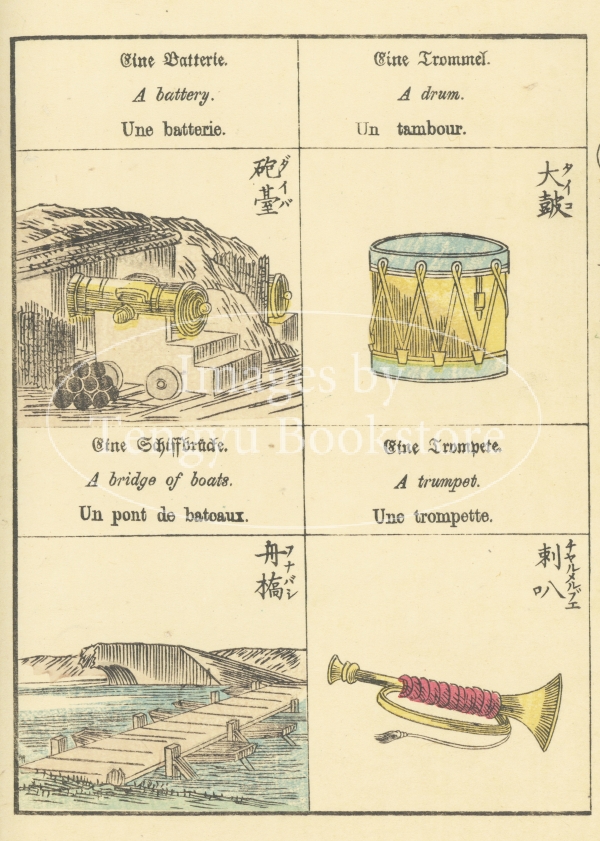 Eine Batterie.
A battery.
Une batterie.
砲臺
ダイバ
Eine Trommel.
A drum.
Un tambour.
大皷
タイコ
Eine Schiffbrücke.
A bridge of boats.
Un pont de bateaux.
舟槗
フナバシ
Eine Trompete.
A trumpet.
Une trompette.
刺叭
チヤルメルブエ
Images by
Tengyu Bookstore